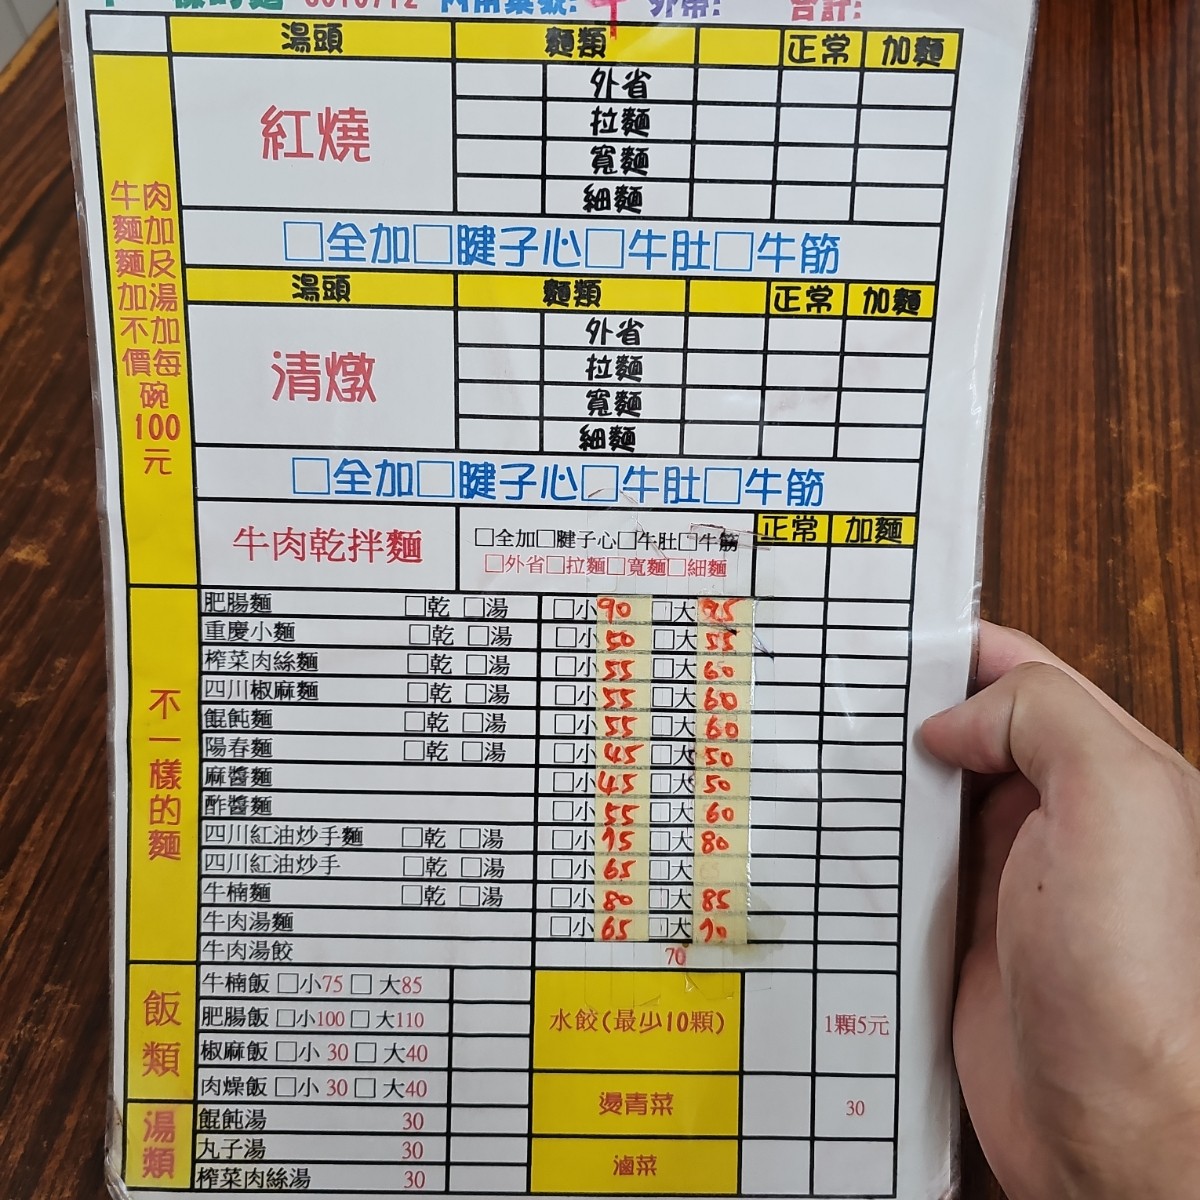 湯頭 麵類 正常 加麵
紅燒
外省
拉麵
寬麵
細麵
□全加□腱子心□牛肚□牛筋
湯頭 麵類 正常 加麵
清燉
外省
拉麵
寬麵
細麵
□全加□腱子心□牛肚□牛筋
牛肉麵加麵加不價
肉加及湯加每
碗
100
元
牛肉乾拌麵
□全加□腱子心□牛肚□牛筋
□外省□拉麵□寬麵□細麵
正常 加麵
不一樣的麵
肥腸麵 □乾 □湯 □小90 □大95
重慶小麵 □乾 □湯 □小50 □大55
榨菜肉絲麵 □乾 □湯 □小55 □大60
四川椒麻麵 □乾 □湯 □小55 □大60
餛飩麵 □乾 □湯 □小55 □大60
陽春麵 □乾 □湯 □小45 □大50
麻醬麵 □小45 □大50
酢醬麵 □小55 □大60
四川紅油炒手麵 □乾 □湯 □小75 □大80
四川紅油炒手 □乾 □湯 □小65 □大
牛楠麵 □乾 □湯 □小80 □大85
牛肉湯麵 □小65 □大70
牛肉湯餃 70
飯類
牛楠飯 □小75 □ 大85
肥腸飯 □小100 □ 大110
椒麻飯 □小 30 □ 大40
肉燥飯 □小 30 □ 大40
湯類
餛飩湯 30
丸子湯 30
榨菜肉絲湯 30
水餃(最少10顆) 1顆5元
燙青菜 30
滷菜